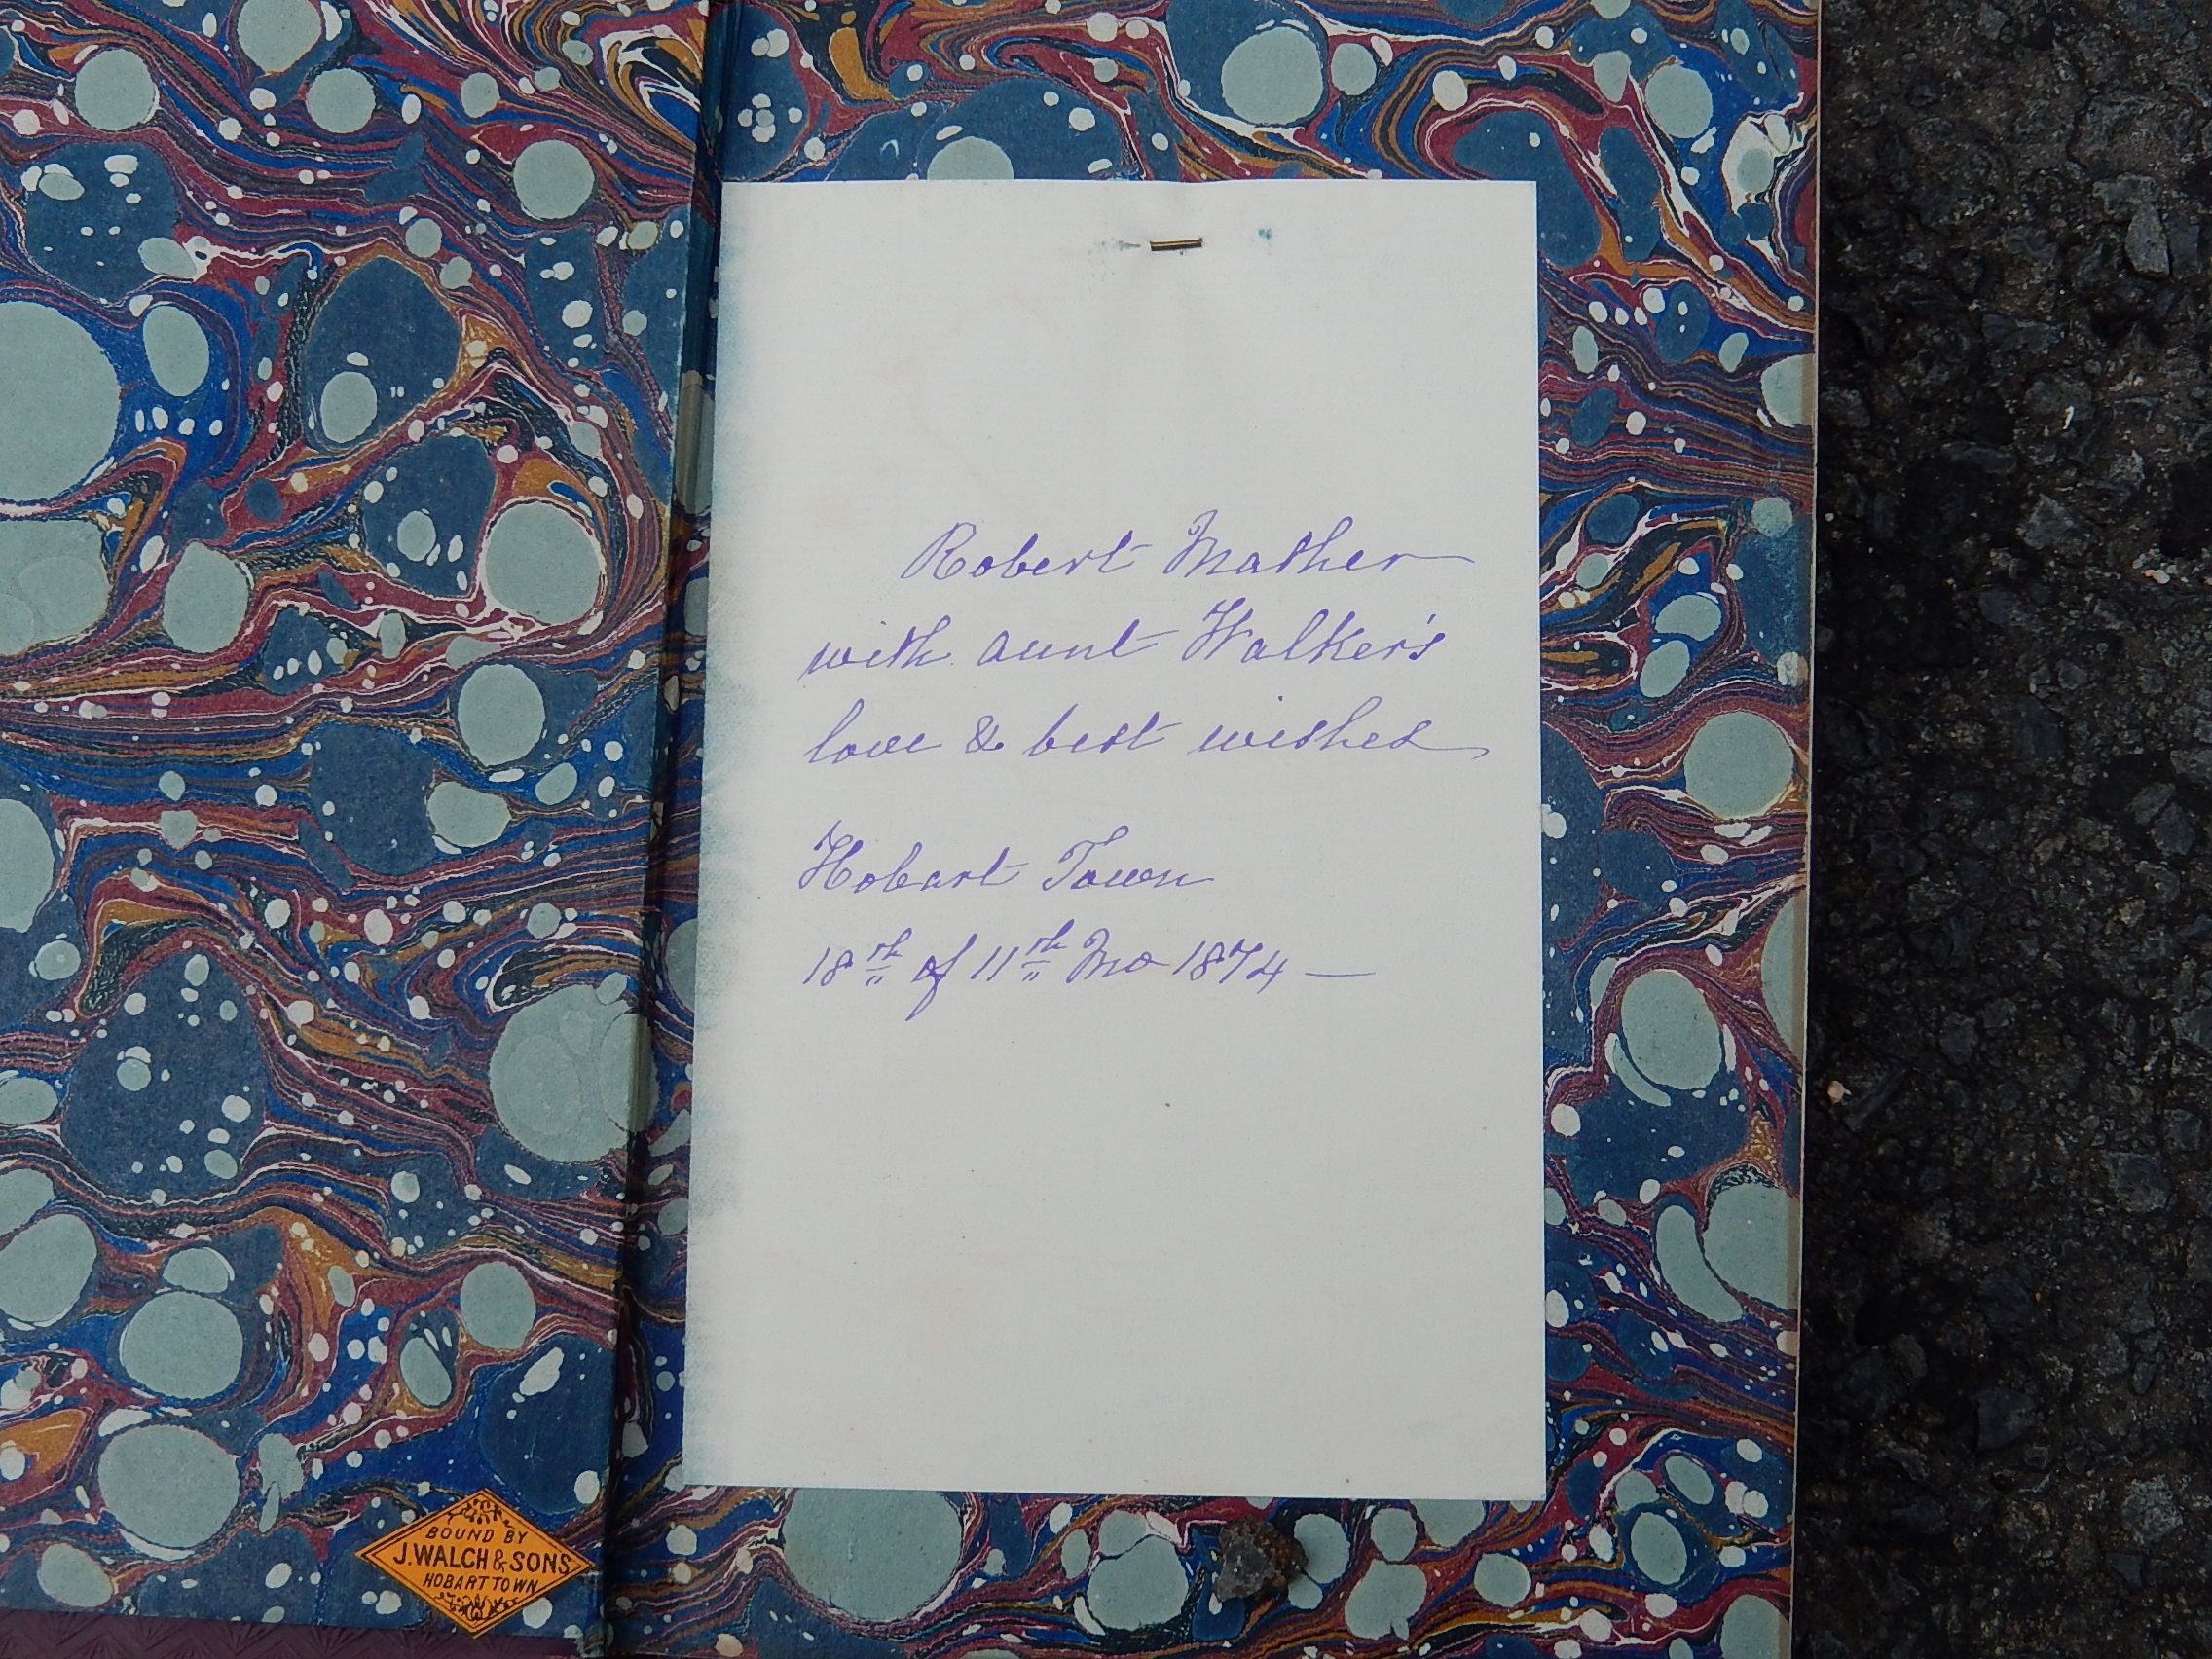 Robert Mather
with aunt Walker's
love & best wishes
Hobart Town
18th of 11th Mo 1874 —
BOUND BY
J. WALCH & SONS
HOBART TOWN